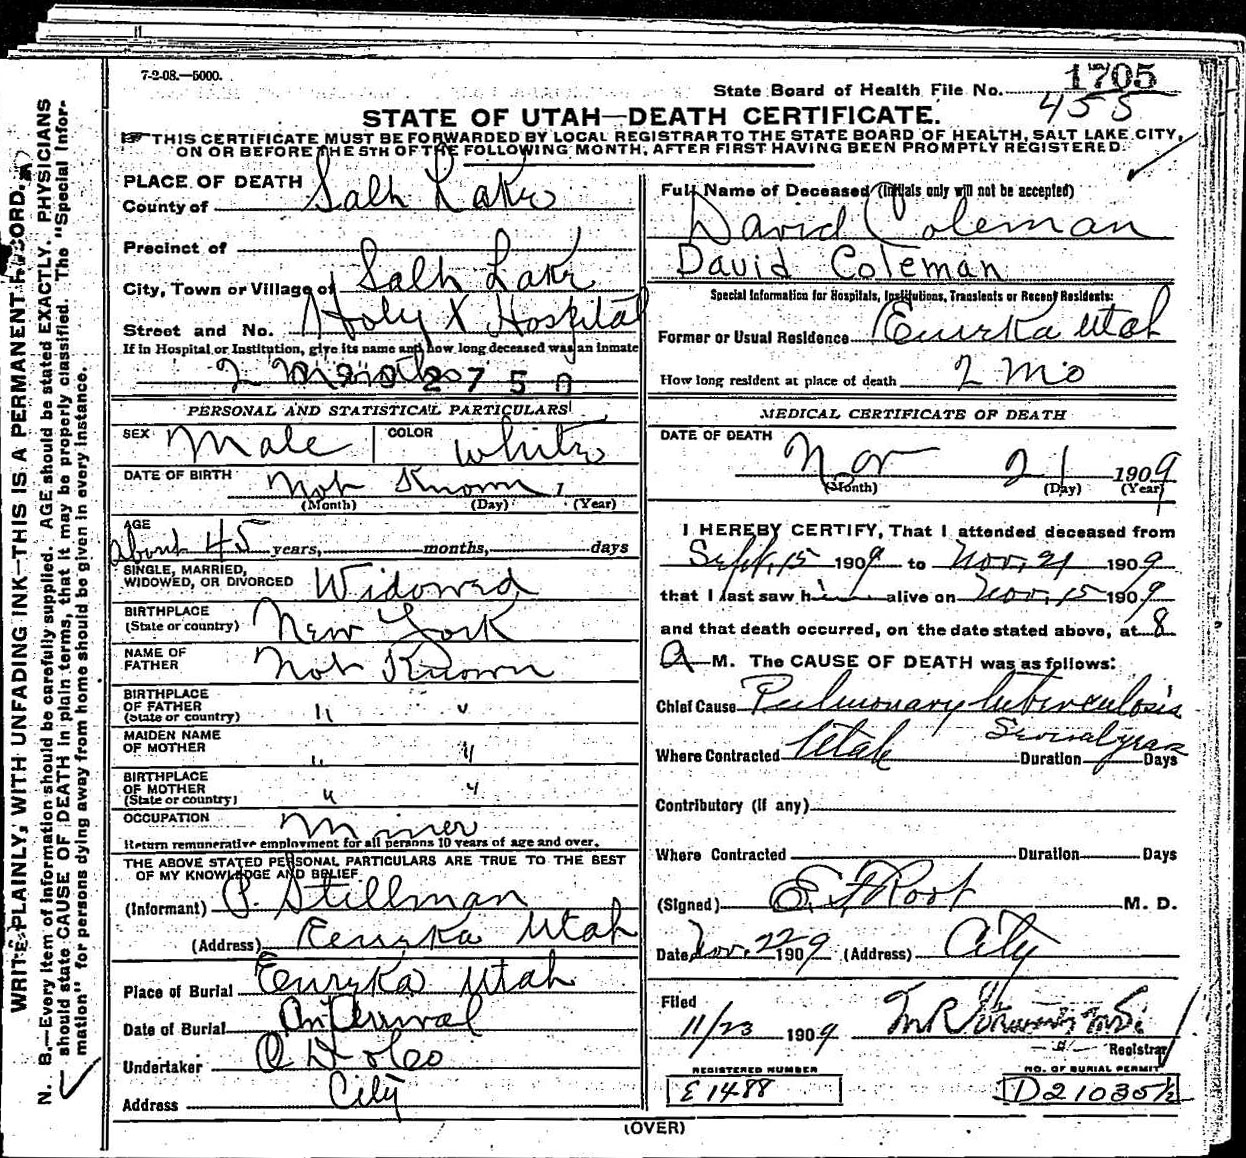 7-2-08.—5000.
State Board of Health File No. 1705
455
STATE OF UTAH—DEATH CERTIFICATE.
THIS CERTIFICATE MUST BE FORWARDED BY LOCAL REGISTRAR TO THE STATE BOARD OF HEALTH, SALT LAKE CITY,
ON OR BEFORE THE 5TH OF THE FOLLOWING MONTH, AFTER FIRST HAVING BEEN PROMPTLY REGISTERED.
WRITE PLAINLY, WITH UNFADING INK—THIS IS A PERMANENT RECORD.
N. B.—Every item of information should be carefully supplied. AGE should be stated EXACTLY. PHYSICIANS
should state CAUSE OF DEATH in plain terms, that it may be properly classified. The "Special Infor-
mation" for persons dying away from home should be given in every instance.
PLACE OF DEATH
County of Salt Lake
Precinct of
City, Town or Village of Salt Lake
Street and No. Holy X Hospital
If in Hospital or Institution, give its name and how long deceased was an inmate
2 Months 2750
PERSONAL AND STATISTICAL PARTICULARS
SEX Male COLOR White
DATE OF BIRTH Not Known 1
(Month) (Day) (Year)
AGE
about 45 years, months, days
SINGLE, MARRIED,
WIDOWED, OR DIVORCED Widowed
BIRTHPLACE
(State or country) New York
NAME OF
FATHER Not Known
BIRTHPLACE
OF FATHER
(State or country) " "
MAIDEN NAME
OF MOTHER " "
BIRTHPLACE
OF MOTHER
(State or country) " "
OCCUPATION Miner
Return remunerative employment for all persons 10 years of age and over.
THE ABOVE STATED PERSONAL PARTICULARS ARE TRUE TO THE BEST
OF MY KNOWLEDGE AND BELIEF.
(Informant) P. Stillman
(Address) Eureka Utah
Place of Burial Eureka Utah
Date of Burial On Arrival
Undertaker
Address City
Full Name of Deceased (Initials only will not be accepted)
David Coleman
David Coleman
Special Information for Hospitals, Institutions, Transients or Recent Residents:
Former or Usual Residence Eureka Utah
How long resident at place of death 2 mo
MEDICAL CERTIFICATE OF DEATH
DATE OF DEATH Nov 21 1909
(Month) (Day) (Year)
I HEREBY CERTIFY, That I attended deceased from
Sept. 15 1909 to Nov. 21 1909
that I last saw him alive on Nov. 15 1909
and that death occurred, on the date stated above, at 8
A M. The CAUSE OF DEATH was as follows:
Chief Cause Pulmonary tuberculosis
Where Contracted Utah Duration Several years Days
Contributory (if any)
Where Contracted Duration Days
(Signed) E. F. Root M. D.
Date Nov. 22 1909 (Address) City
Filed
11/23 1909
Registrar
REGISTERED NUMBER
E 1488
NO. OF BURIAL PERMIT
D21035½
(OVER)